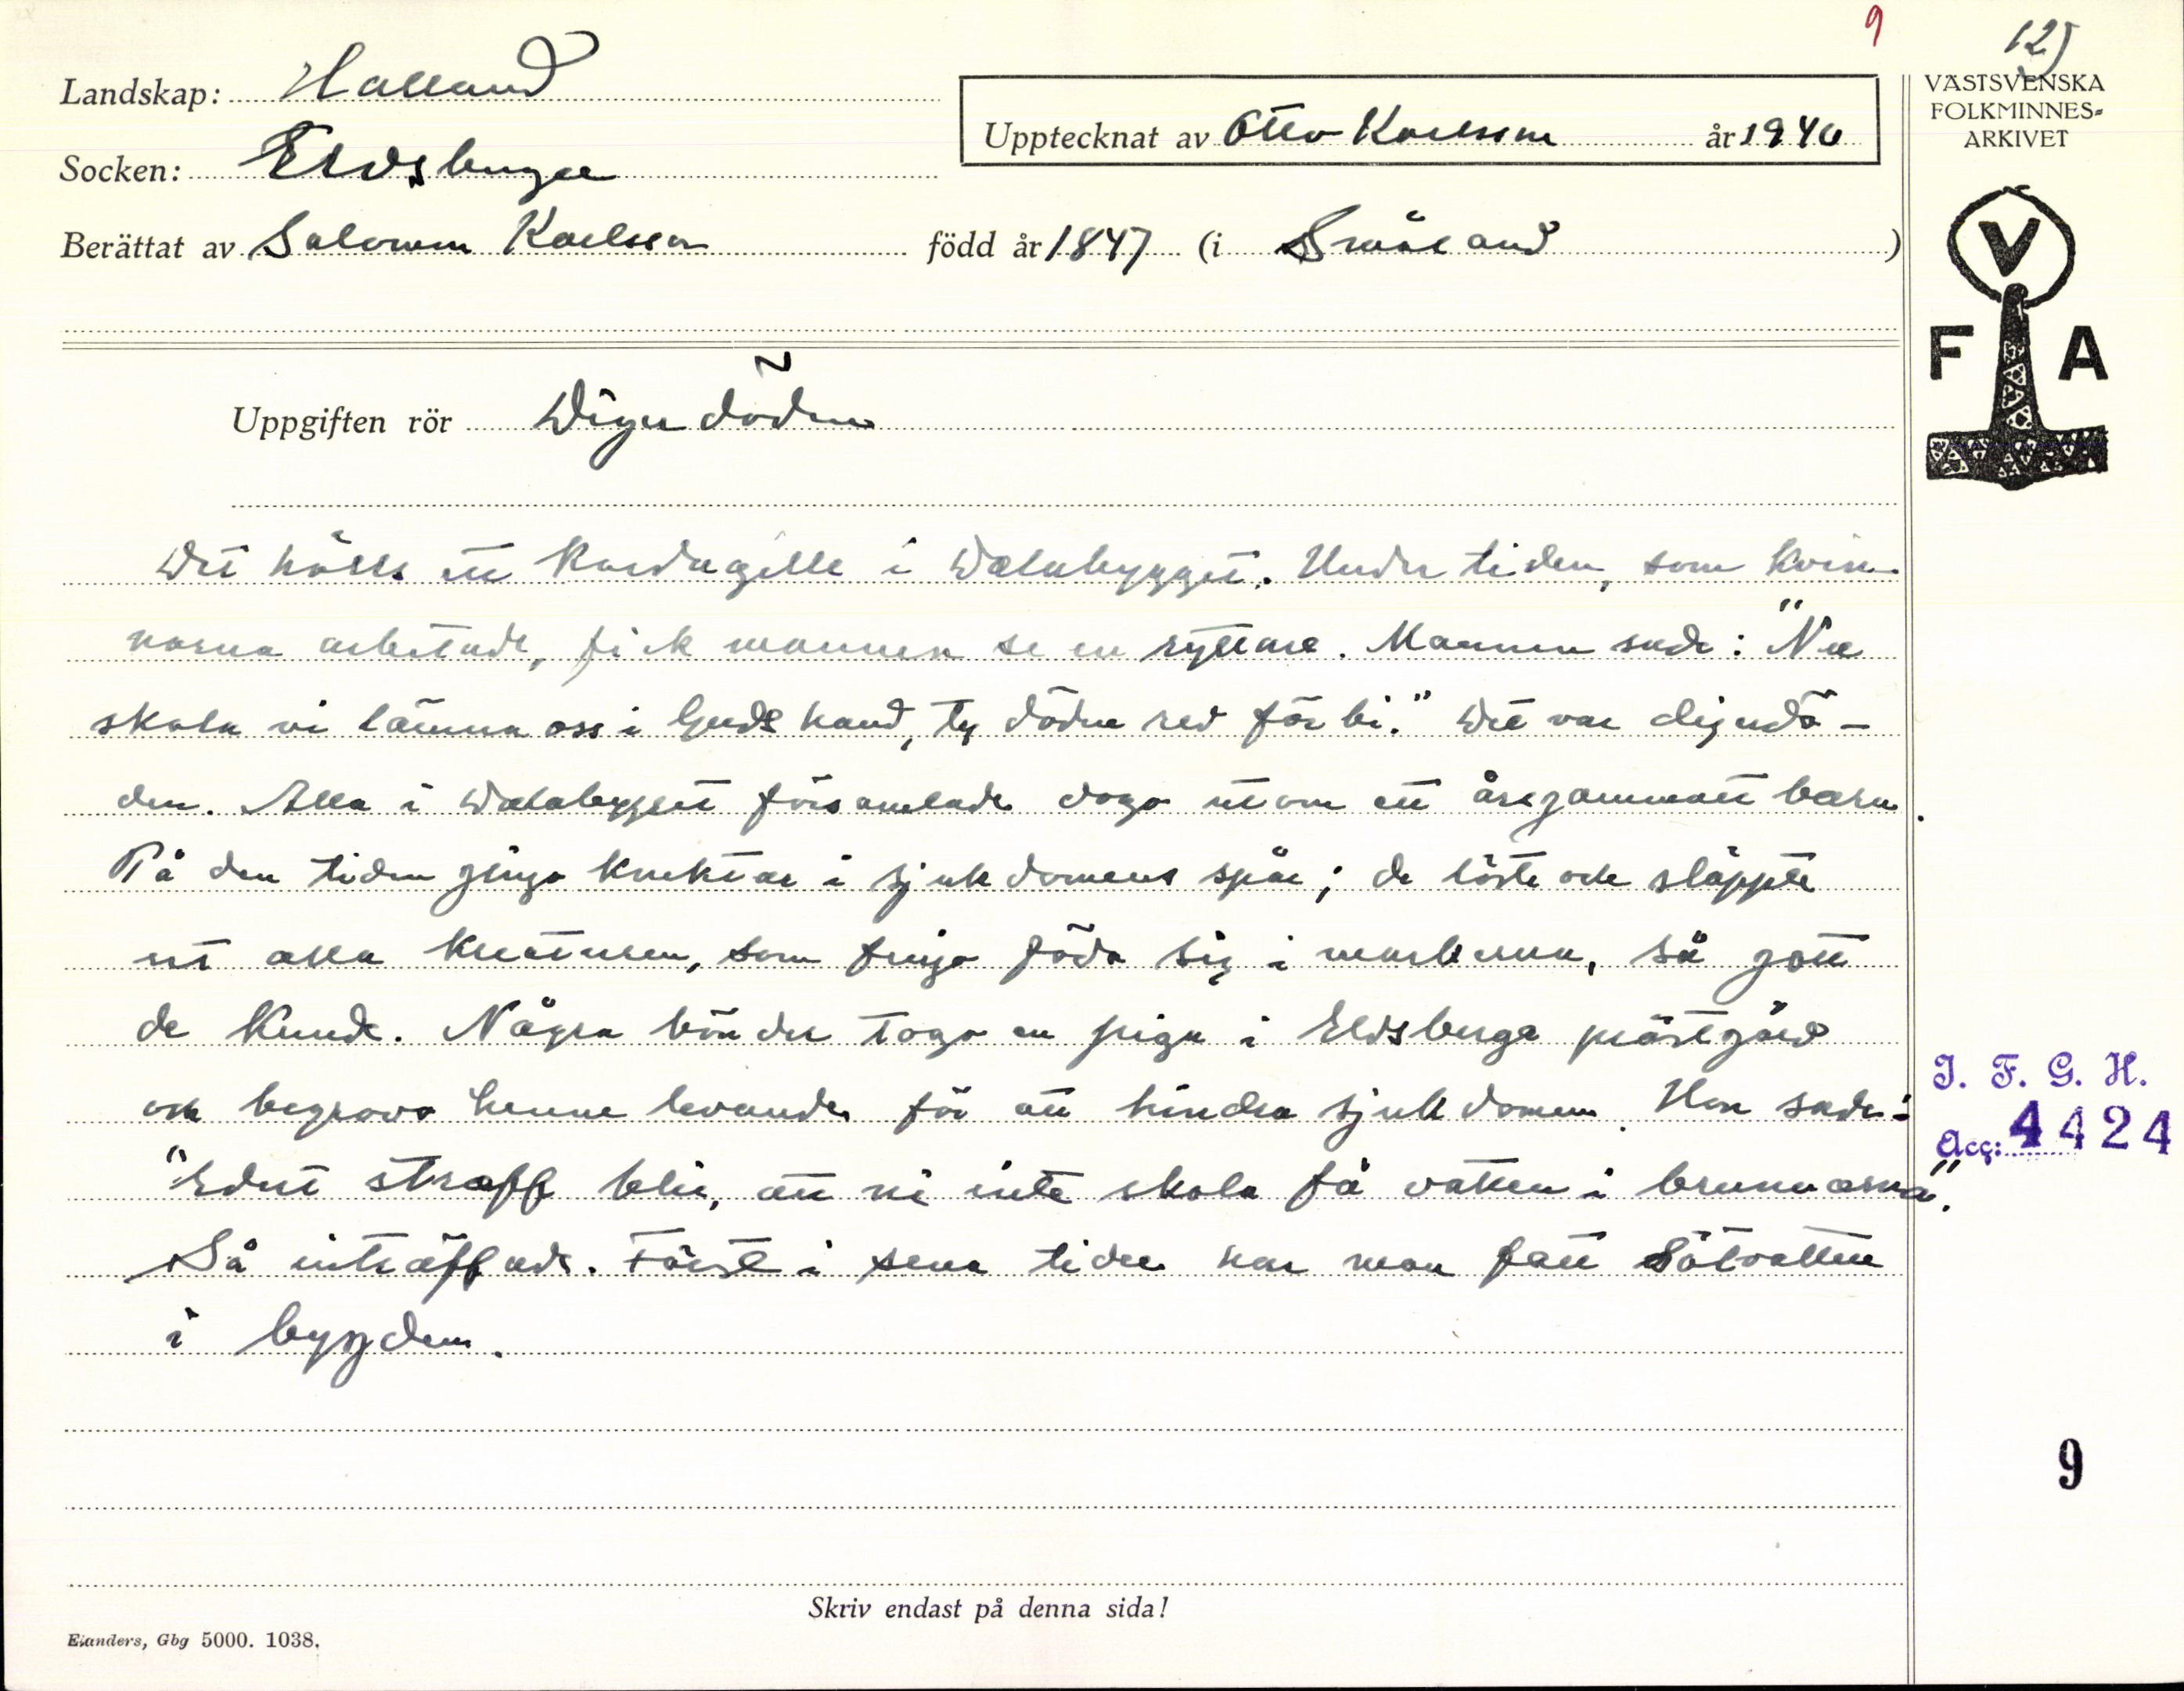 9
12)
Landskap: Halland
Socken: Eldsberga
Berättat av Salomon Karlsson född år 1847 (i Småland)
Upptecknat av Otto Karlsson år 1940
VÄSTSVENSKA
FOLKMINNES-
ARKIVET
V
F A
Uppgiften rör Digerdöden
Det hölls ett kardagille i Dalabygget. Under tiden, som kvin-
norna arbetade, fick mannen se en ryttare. Mannen sade: "Nu
skola vi lämna oss i Guds hand, ty döden red förbi." Det var digerdö-
den. Alla i Dalabygget församlade dogo utom ett årsgammalt barn.
På den tiden gingo knektar i sjukdomens spår; de löste och släppte
ut alla kreaturen, som fingo föda sig i markerna, så gott
de kunde. Några bönder togo en piga i Eldsberga prästgård
och begrovo henne levande för att hindra sjukdomen. Hon sade:
"Edert straff blir, att ni inte skola få vatten i brunnarna".
Så inträffade. Först i sena tider har man fått sötvatten
i bygden.
I. F. G. H.
Acc: 4424
9
Skriv endast på denna sida!
Elanders, Gbg 5000. 1038.